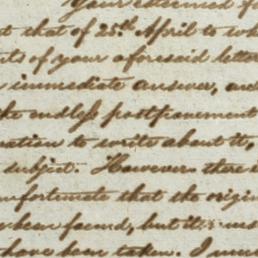 Your esteemed
t that of 25th April to
ts of your aforesaid letter
immediate answer, and
the endless postponement
ation to write about it,
subject. However there
nfortunate that the origin
been found, but it
have been taken. I